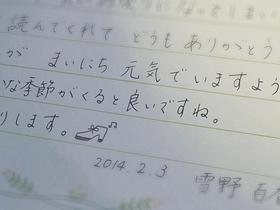 読んでくれて どうも ありがとう
が まいにち 元気でいますよう
な季節がくると良いですね。
りします。
2014.2.3
雪野 百